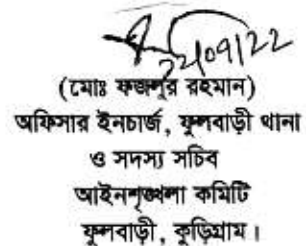 22/09/22
(মোঃ ফজলুর রহমান)
অফিসার ইনচার্জ, ফুলবাড়ী থানা
ও সদস্য সচিব
আইনশৃঙ্খলা কমিটি
ফুলবাড়ী, কুড়িগ্রাম।